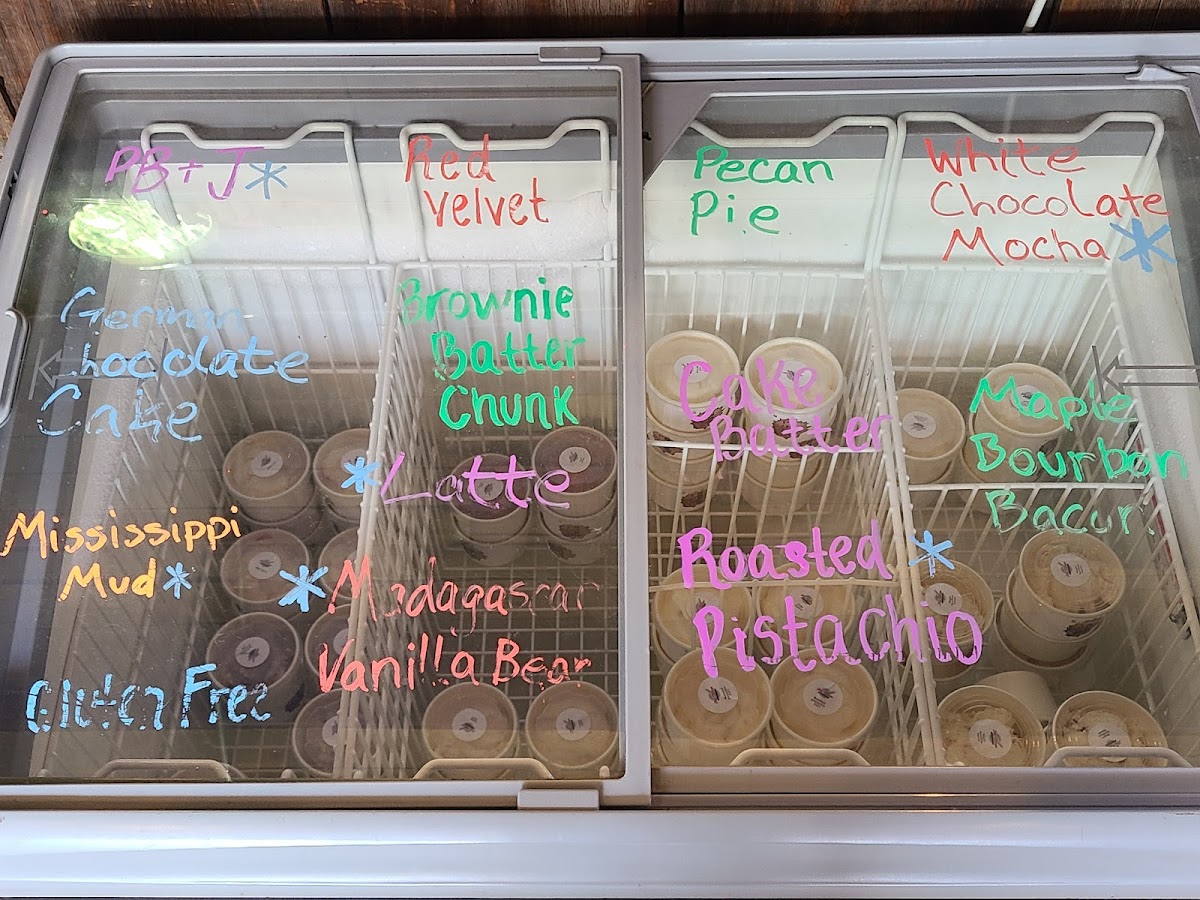 PB+J*
Red
Velvet
Pecan
Pie
White
Chocolate
Mocha*
German
Chocolate
Cake
Brownie
Batter
Chunk
Cake
Batter
Maple
Bourbon
Bacun
*Latte
Mississippi
Mud*
*Madagascar
Vanilla Bean
Roasted*
Pistachio
Gluten Free